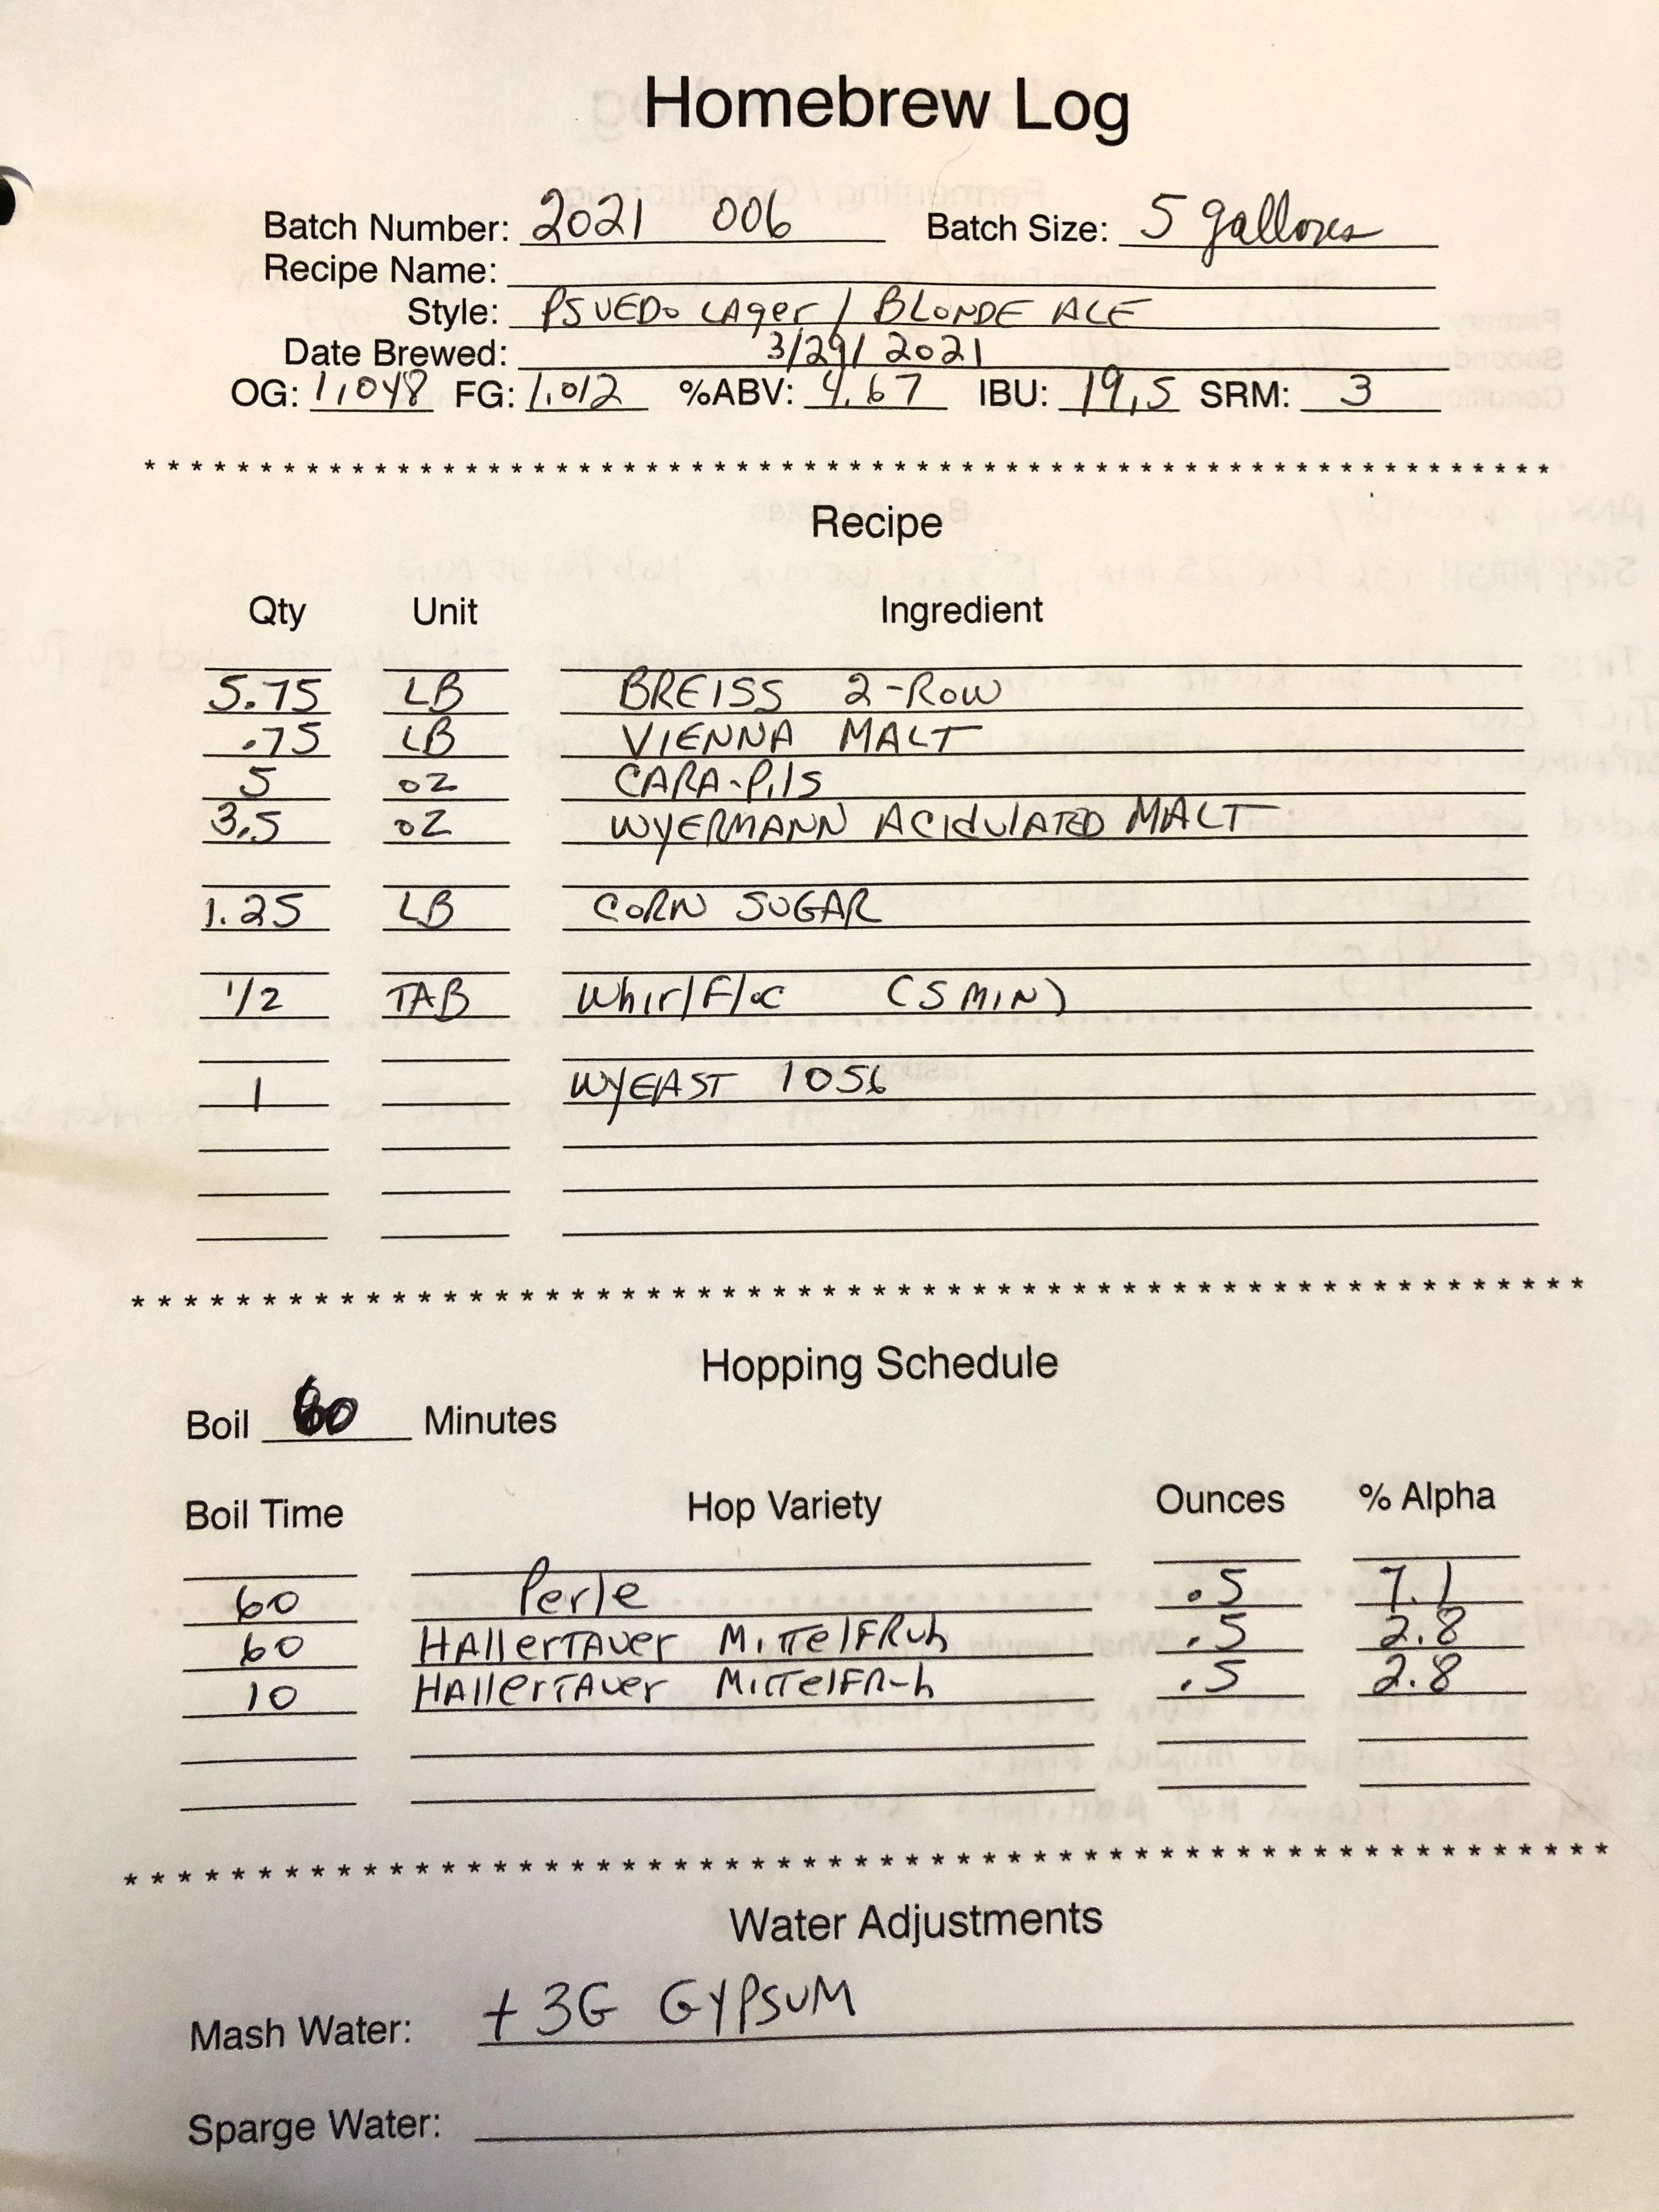 Homebrew Log
Batch Number: 2021 006 Batch Size: 5 gallons
Recipe Name:
Style: PSUEDO LAger / BLONDE ALE
Date Brewed: 3/29/2021
OG: 1.048 FG: 1.012 %ABV: 4.67 IBU: 19.5 SRM: 3
* * * * * * * * * * * * * * * * * * * * * * * * * * * * * * * * * * * * * * * * * * * * * * * * * * * * * * * * * *
Recipe
Qty Unit Ingredient
5.75 LB BREISS 2-ROW
.75 LB VIENNA MALT
5 OZ CARA-PilS
3.5 OZ WYERMANN ACIdulATED MALT
1.25 LB CORN SUGAR
1/2 TAB WhirlFloc (5 MIN)
1 WYEAST 1056
* * * * * * * * * * * * * * * * * * * * * * * * * * * * * * * * * * * * * * * * * * * * * * * * * * * * * * * *
Hopping Schedule
Boil 60 Minutes
Boil Time Hop Variety Ounces % Alpha
60 Perle .5 7.1
60 HAllerTAuer MiTTelFRuh .5 2.8
10 HAllerTAuer MiTTelFRuh .5 2.8
* * * * * * * * * * * * * * * * * * * * * * * * * * * * * * * * * * * * * * * * * * * * * * * * * * * * * * * *
Water Adjustments
Mash Water: + 3G GYPSUM
Sparge Water: